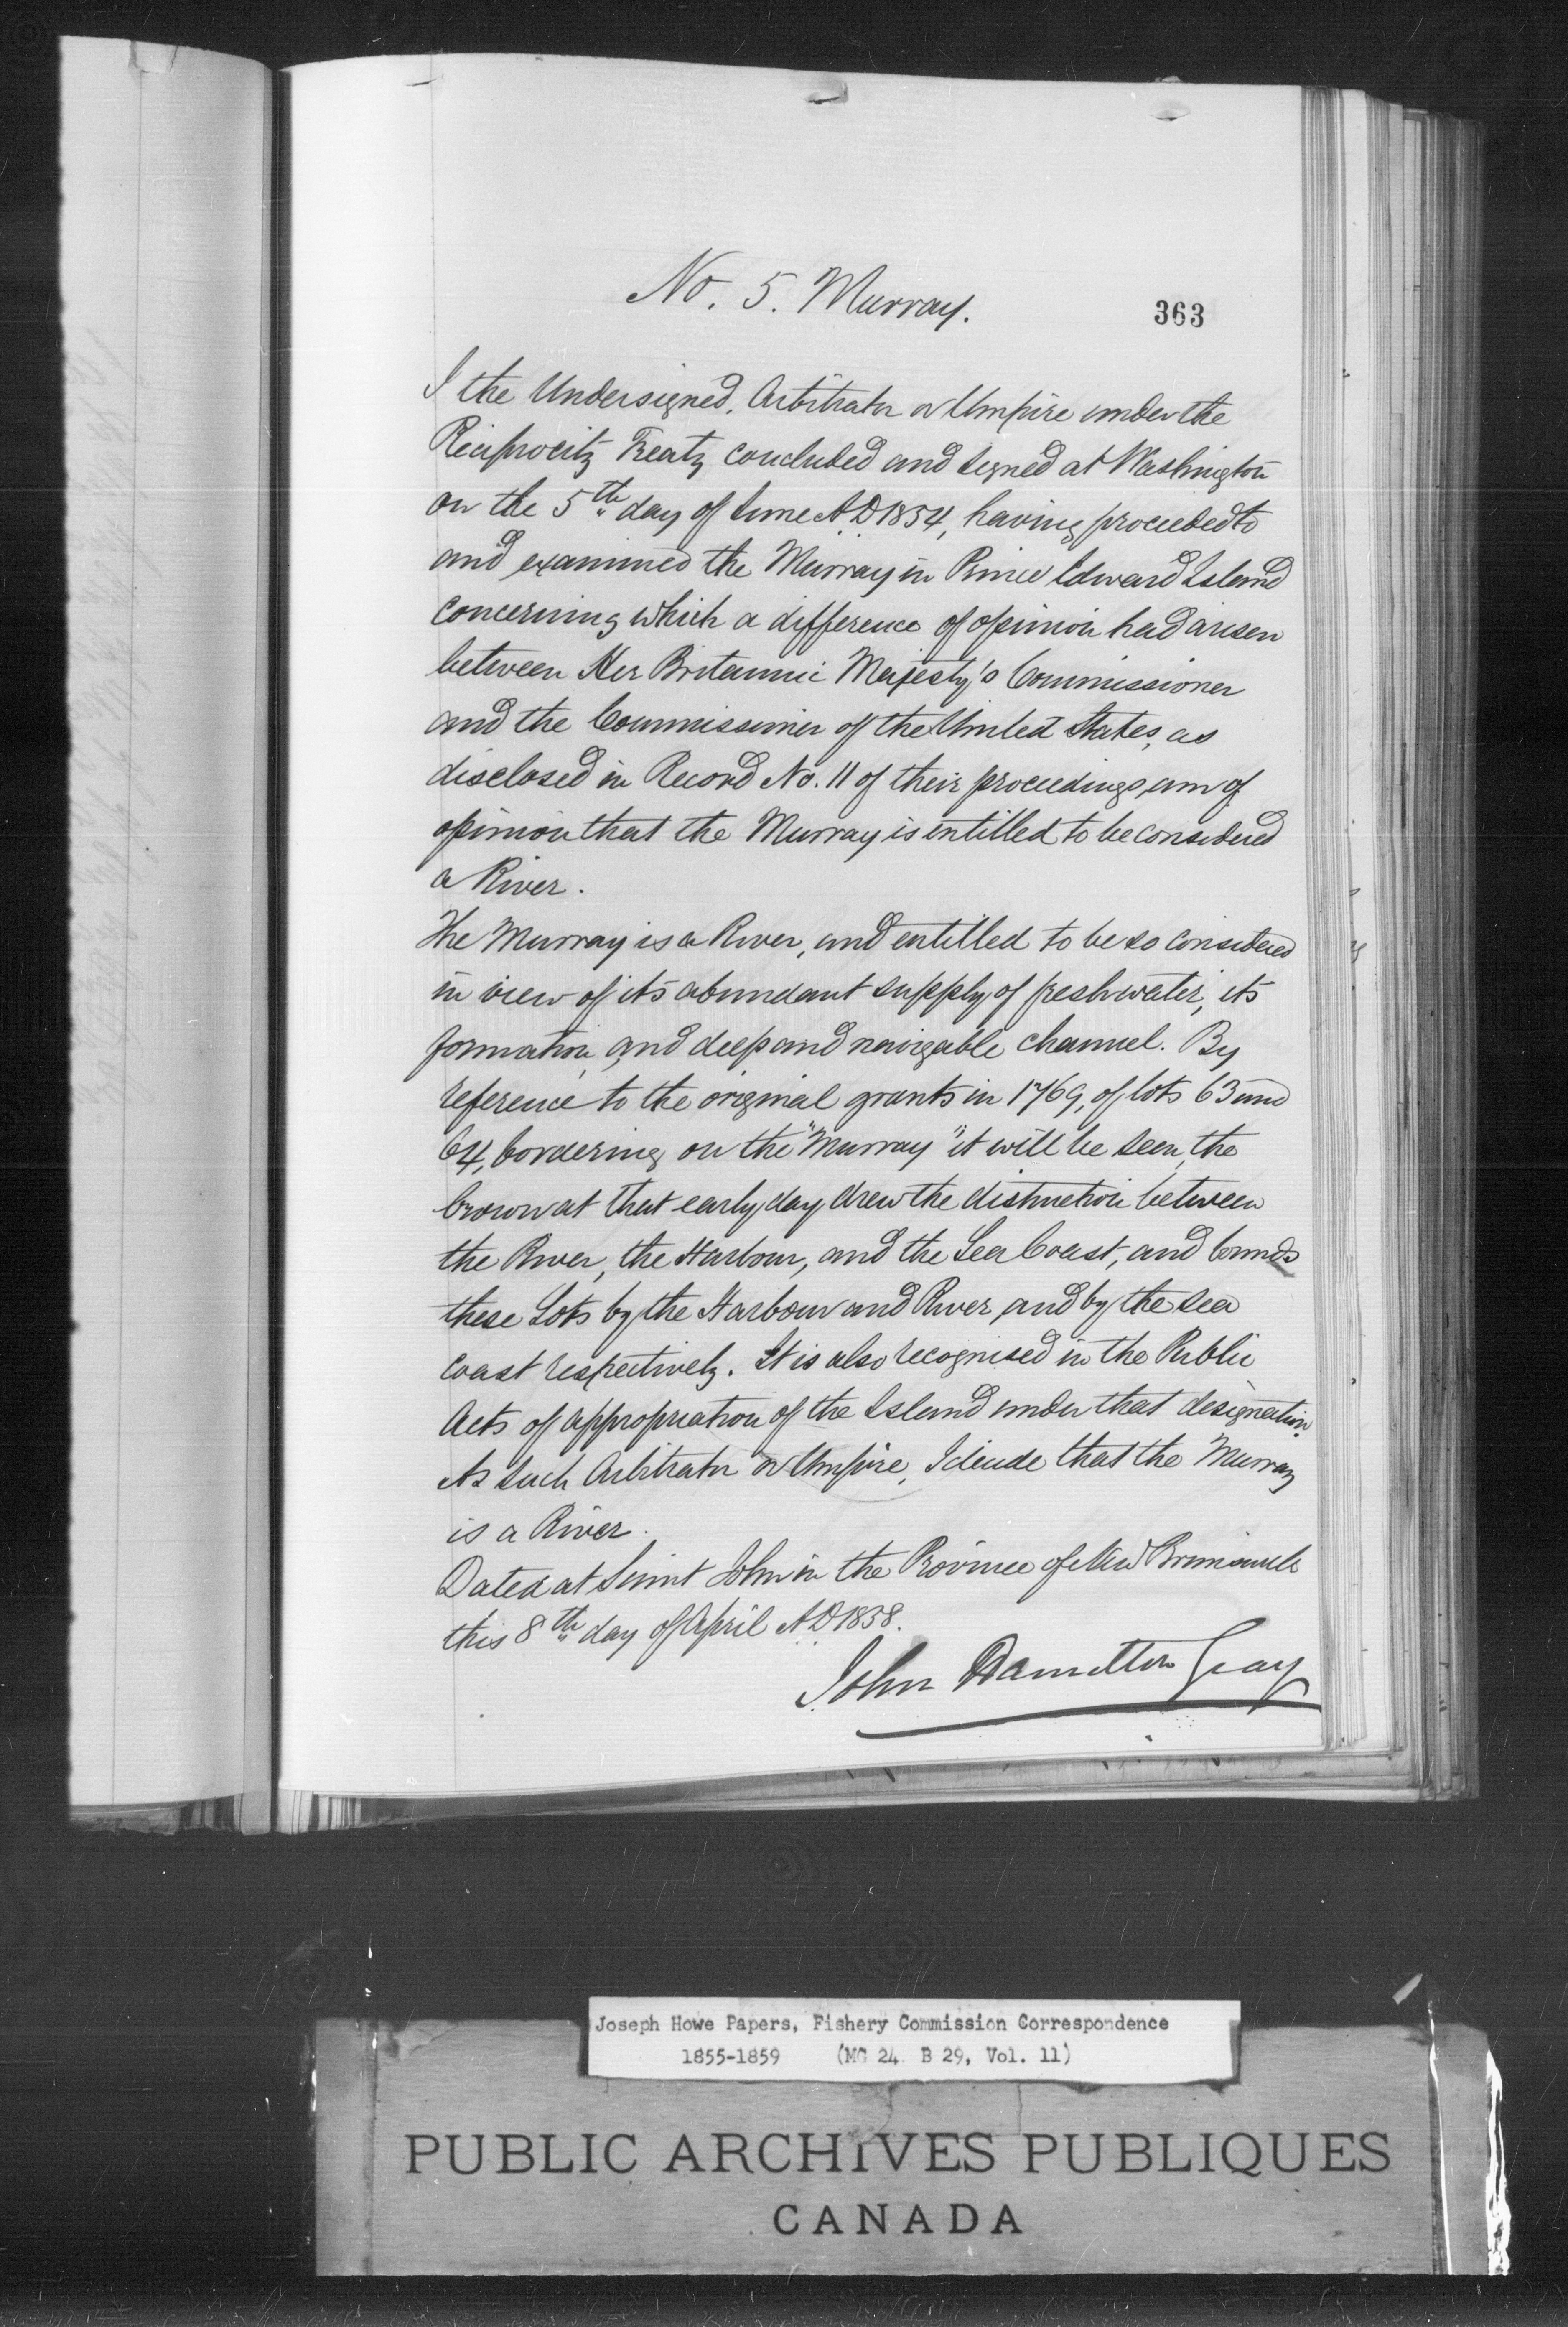 No. 5. Murray.
363
I the Undersigned, Arbitrator or Umpire under the
Reciprocity Treaty concluded and signed at Washington
on the 5th day of June A.D 1854, having proceeded to
and examined the Murray in Prince Edward Island
concerning which a difference of opinion had arisen
between Her Britannic Majesty's Commissioner
and the Commissioner of the United States, as
disclosed in Record No. 11 of their proceedings am of
opinion that the Murray is entitled to be considered
a River.
The Murray is a River, and entitled to be so considered
in view of its abundant supply of fresh water, its
formation, and deep and navigable channel. By
reference to the original grants in 1769, of lots 63 and
64, bordering on the "Murray" it will be seen, the
Crown at that early day, drew the distinction between
the River, the Harbour, and the Sea Coast, and bounds
these Lots by the Harbour and River, and by the sea
coast respectively. It is also recognised in the Public
Acts of appropriation of the Island under that designation.
As such Arbitrator or Umpire, I decide that the Murray
is a River.
Dated at Saint John in the Province of New Brunswick
this 8th day of April A.D 1858.
John Hamilton Gray
Joseph Howe Papers, Fishery Commission Correspondence
1855-1859 (MG 24 B 29, Vol. 11)
PUBLIC ARCHIVES PUBLIQUES
CANADA